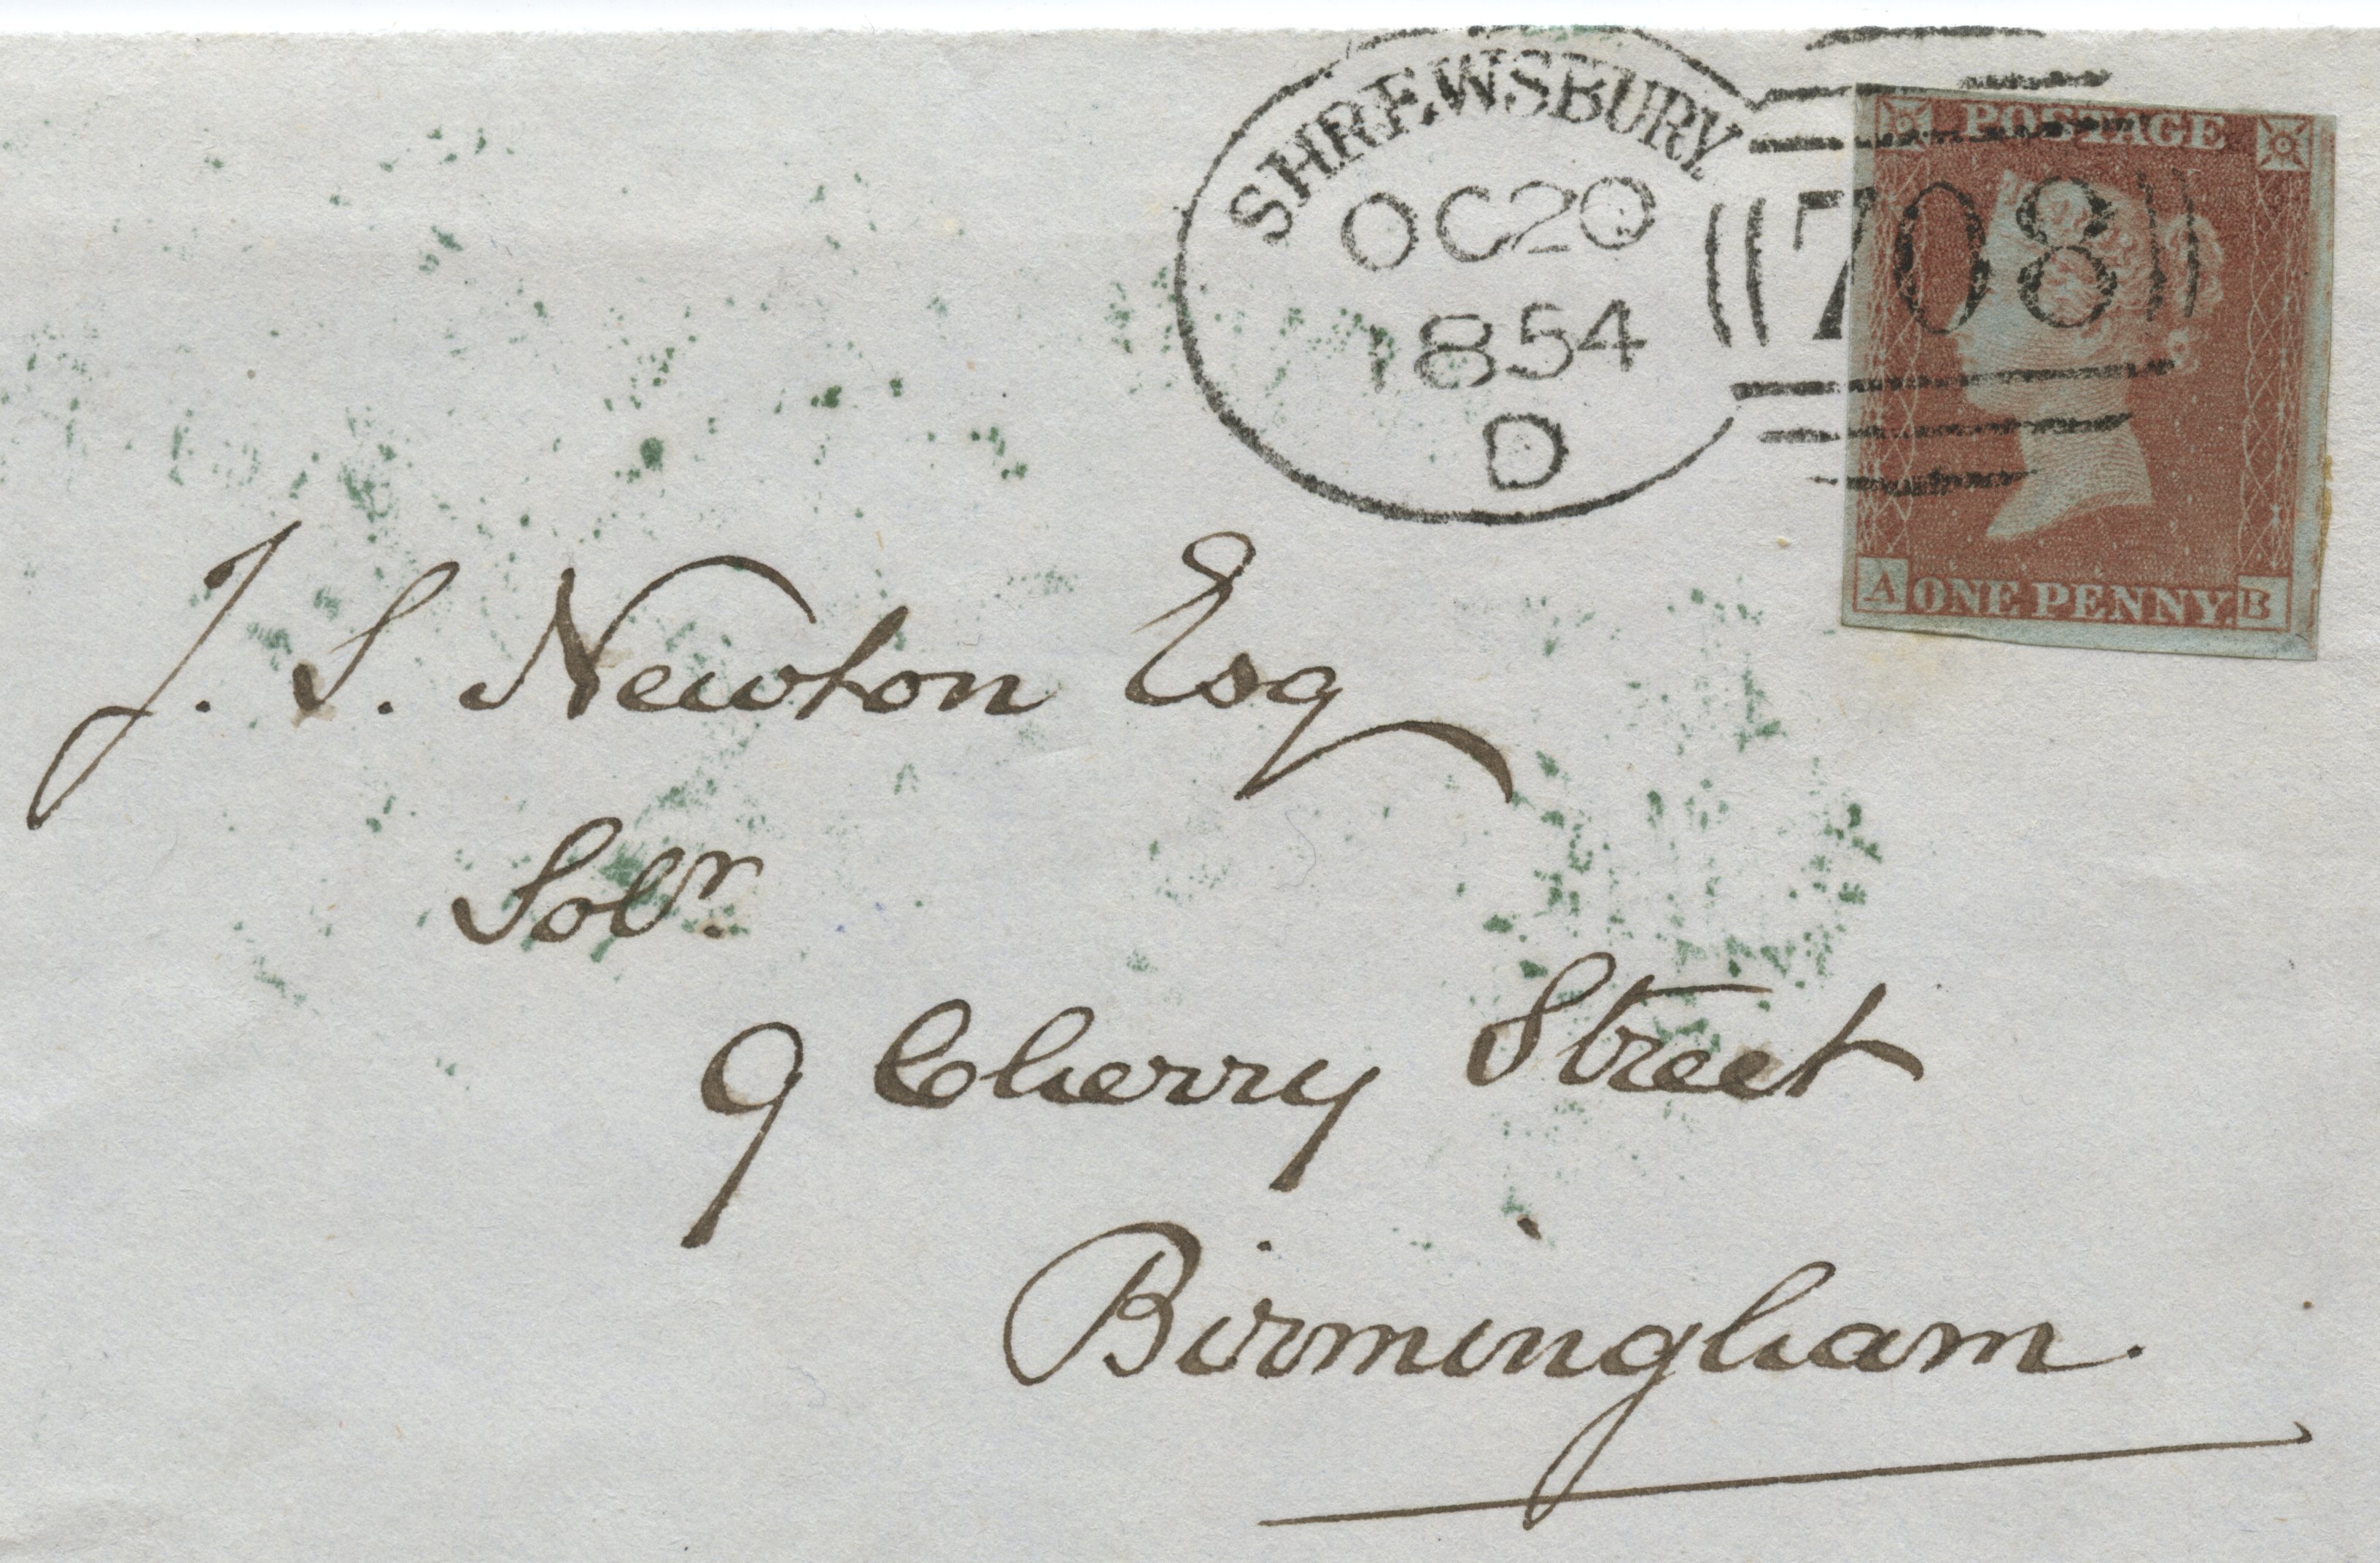 SHREWSBURY.
OC20
1854
D
708
POSTAGE
A ONE PENNY. B
J. S. Newton Esq
Solr.
9 Cherry Street
Birmingham.